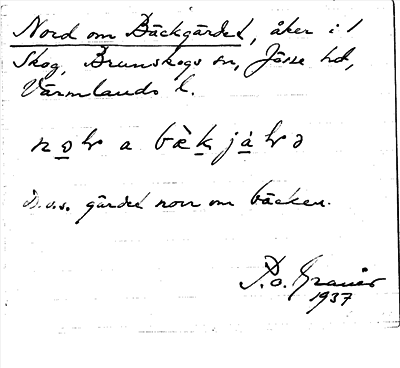 Nord om Bäckgärdet, åker i 1
Skog, Brunskogs sn, Jösse hd,
Värmlands l.
a
D.v.s. gärdet norr om bäcken.
P.O. Granér
1937